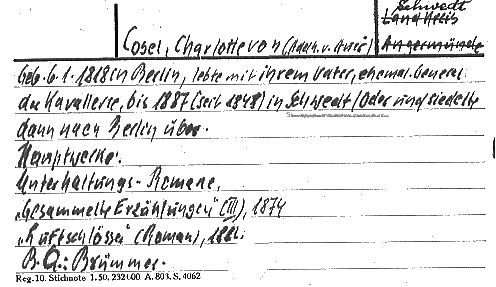 Schwedt
Landkreis
Angermünde
Cosel, Charlotte von
geb. 6.1.1818 in Berlin, lebte mit ihrem Vater, ehemal. General
der Kavallerie, bis 1887 (seit 1848) in Schwedt/Oder und siedelte
dann nach Berlin über.
Hauptwerke:
Unterhaltungs-Romane,
"Gesammelte Erzählungen" (III), 1874
"Luftschlösser" (Roman),
B.Q.: Brümmer.
Reg.10. Stichnote 1. 50. 2321.00 A. 803. S. 4062